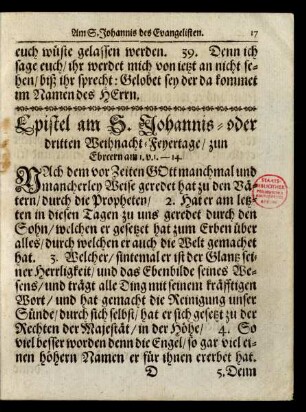 Am S. Johannis des Evangelisten. 17
euch wüste gelassen werden. 39. Denn ich
sage euch/ ihr werdet mich von ietzt an nicht se-
hen/ biß ihr sprecht: Gelobet sey der da kommet
im Namen des HErrn.
Epistel am S. Johannis- oder
dritten Weihnacht-Feyertage/ zun
Ebreern am 1. v. 1.—14.
NAch dem vor Zeiten GOtt manchmal und
mancherley Weise geredet hat zu den Vä-
tern/ durch die Propheten/ 2. Hat er am letz-
ten in diesen Tagen zu uns geredet durch den
Sohn/ welchen er gesetzt hat zum Erben über
alles/ durch welchen er auch die Welt gemachet
hat. 3. Welcher/ sintemal er ist der Glantz sei-
ner Herrligkeit/ und das Ebenbilde seines We-
sens/ und trägt alle Ding mit seinem kräfftigen
Wort/ und hat gemacht die Reinigung unser
Sünde/ durch sich selbst/ hat er sich gesetzt zu der
Rechten der Majestät/ in der Höhe/ 4. So
viel besser worden denn die Engel/ so gar viel ei-
nen höhern Namen er für ihnen ererbet hat.
D 5. Denn